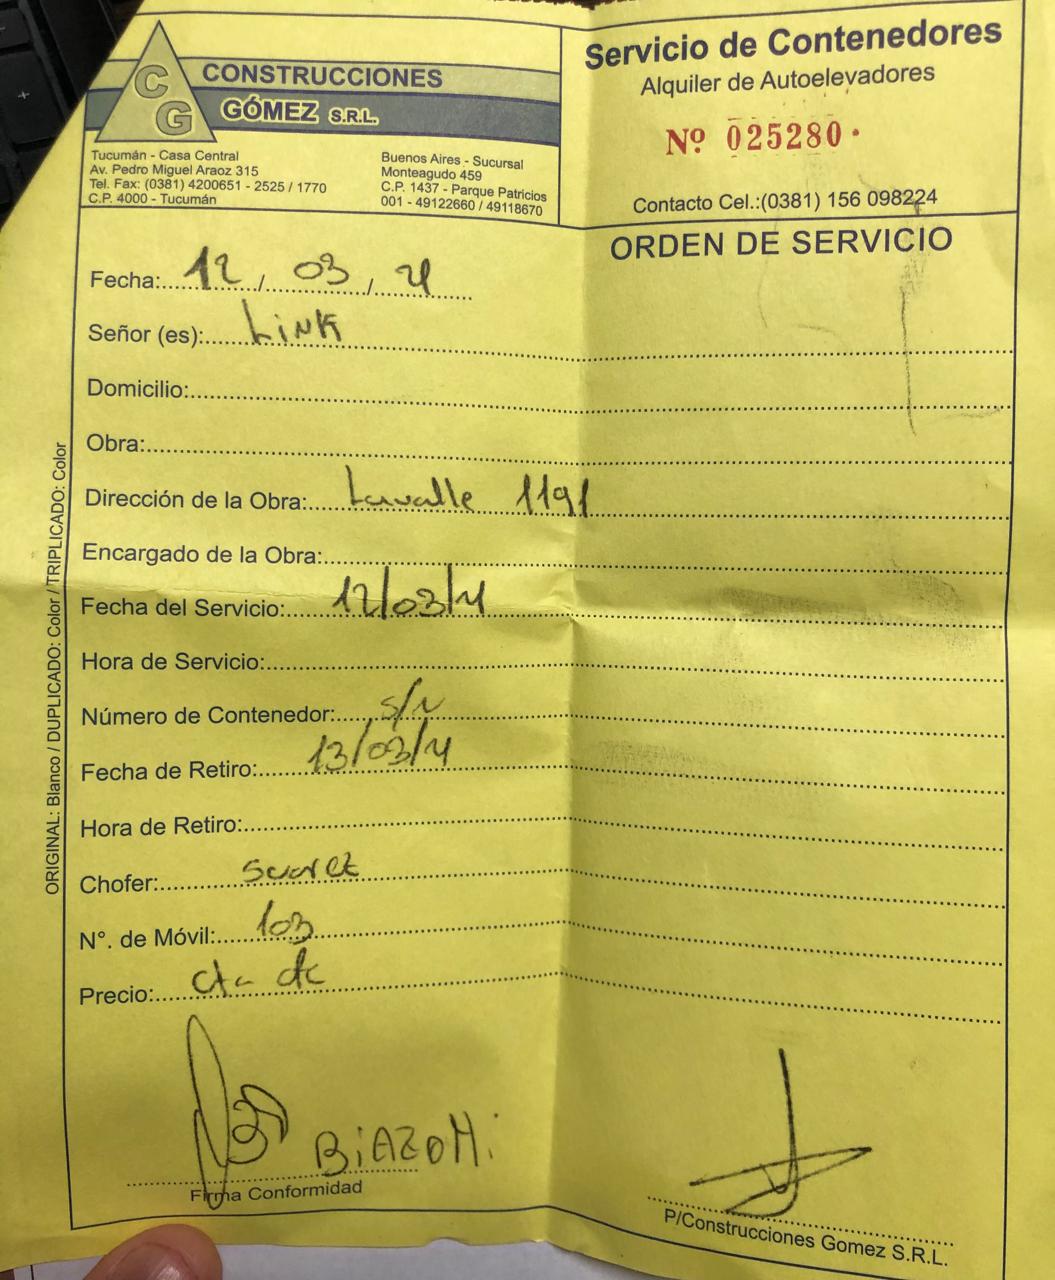 C G
CONSTRUCCIONES
GÓMEZ S.R.L.
Tucumán - Casa Central
Av. Pedro Miguel Araoz 315
Tel. Fax: (0381) 4200651 - 2525 / 1770
C.P. 4000 - Tucumán
Buenos Aires - Sucursal
Monteagudo 459
C.P. 1437 - Parque Patricios
001 - 49122660 / 49118670
Servicio de Contenedores
Alquiler de Autoelevadores
Nº 025280
Contacto Cel.:(0381) 156 098224
ORDEN DE SERVICIO
Fecha: 12 / 03 / 21
Señor (es): Link
Domicilio:
Obra:
Dirección de la Obra: Lavalle 1191
Encargado de la Obra:
Fecha del Servicio: 12/03/21
Hora de Servicio:
Número de Contenedor: S/N
Fecha de Retiro: 13/03/21
Hora de Retiro:
Chofer: Suarez
N°. de Móvil: 103
Precio: cta cte
BiAZOHi
Firma Conformidad
P/Construcciones Gomez S.R.L.
ORIGINAL: Blanco / DUPLICADO: Color / TRIPLICADO: Color